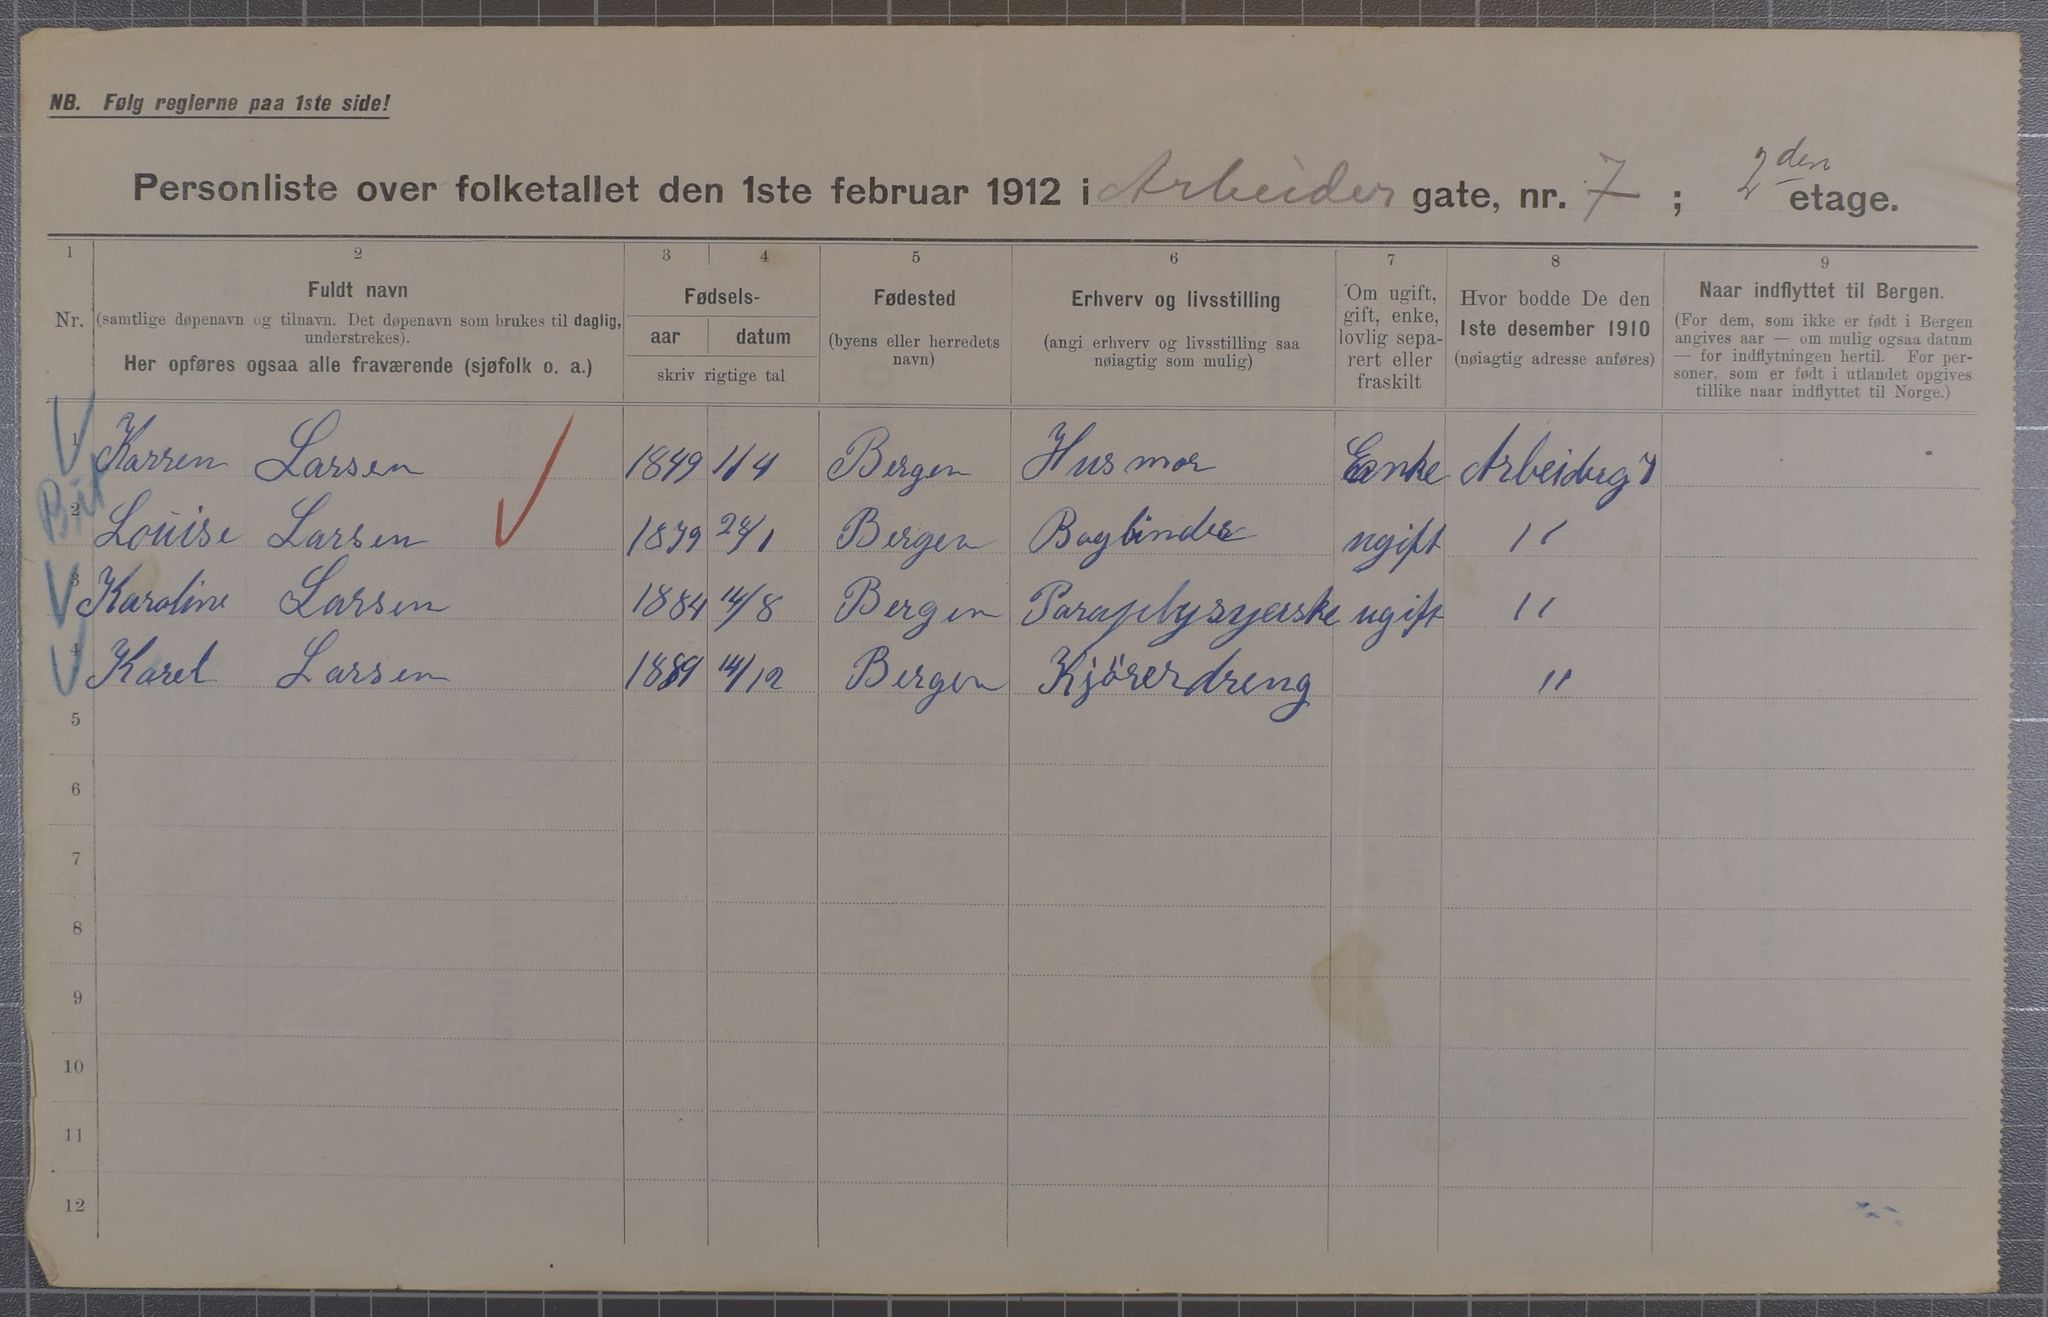 NB. Følg reglerne paa 1ste side!
Personliste over folketallet den 1ste februar 1912 i Arbeider gate, nr. 7 ; 2den etage.
1 2 3 4 5 6 7 8 9
Nr.
Fuldt navn
(samtlige døpenavn og tilnavn. Det døpenavn som brukes til daglig,
understrekes).
Her opføres ogsaa alle fraværende (sjøfolk o. a.)
Fødsels-
aar datum
skriv rigtige tal
Fødested
(byens eller herredets
navn)
Erhverv og livsstilling
(angi erhverv og livsstilling saa
nøiagtig som mulig)
Om ugift,
gift, enke,
lovlig sepa-
rert eller
fraskilt
Hvor bodde De den
1ste desember 1910
(nøiagtig adresse anføres)
Naar indflyttet til Bergen.
(For dem, som ikke er født i Bergen
angives aar — om mulig ogsaa datum
— for indflytningen hertil. For per-
soner, som er født i utlandet opgives
tillike naar indflyttet til Norge.)
1 Karren Larsen 1849 11/4 Bergen Husmor Enke Arbeiderg 7
2 Louise Larsen 1879 Bergen Bogbinder ugift 11
3 Karoline Larsen 1884 14/8 Bergen Paraplysyerske ugift 11
4 Karel Larsen 1889 14/12 Bergen Kjörerdreng 11
5
6
7
8
9
10
11
12